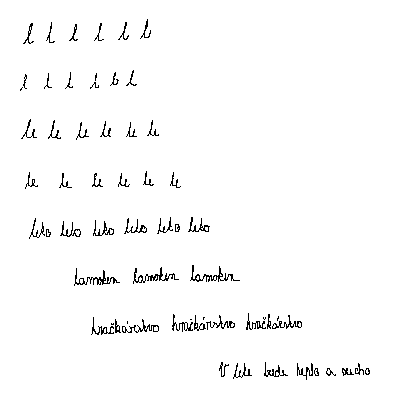 l l l l l l
l l l l l l
le le le le le le
le le le le le le
leto leto leto leto leto leto
lamohen lamohen lamohen
hračkárstvo hračkárstvo hračkárstvo
V lete bude teplo a sucho